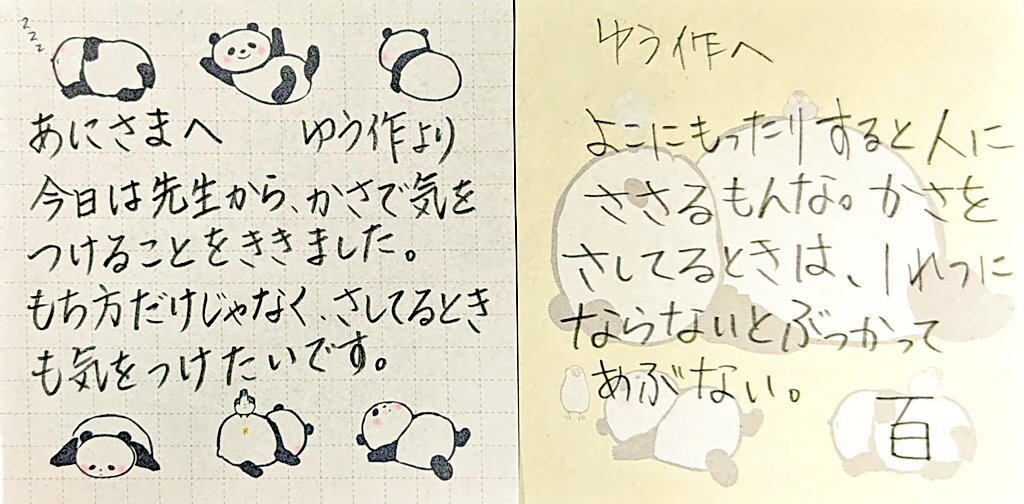 z
z
z
あにさまへ ゆう作より
今日は先生から、かさで気を
つけることをききました。
もち方だけじゃなく、さしてるとき
も気をつけたいです。
ゆう作へ
よこにもったりすると人に
ささるもんな。かさを
さしてるときは、1れつに
ならないとぶつかって
あぶない。
百